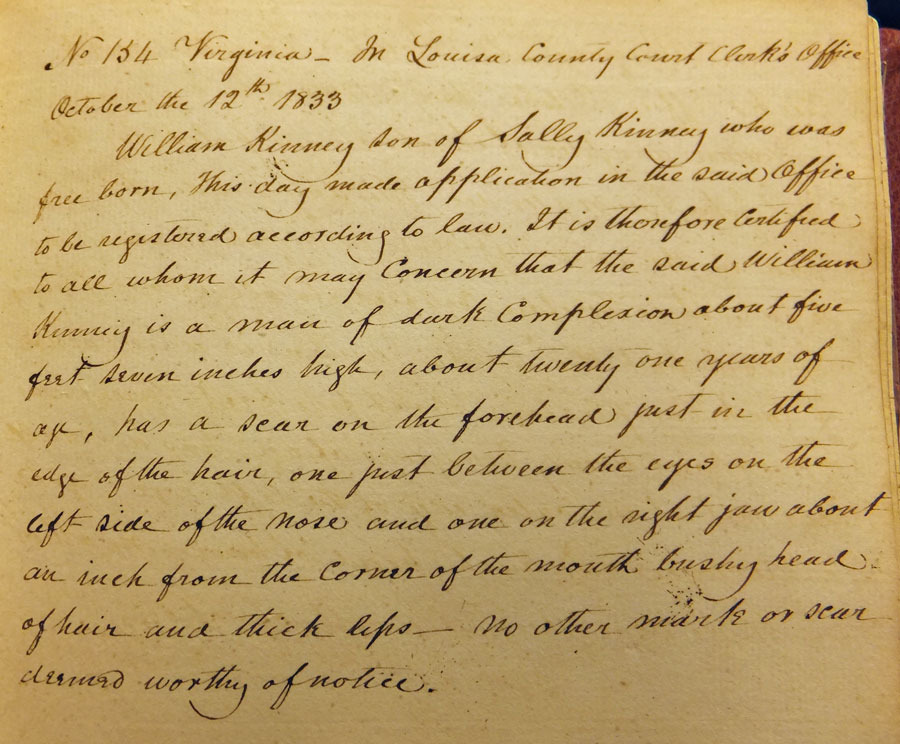 No 134 Virginia - In Louisa County Court Clerk's Office
October the 12th 1833
William Kinney son of Sally Kinney who was
free born, This day made application in the said Office
to be registered according to law. It is therefore Certified
to all whom it may Concern that the said William
Kinney is a man of dark Complexion about five
feet seven inches high, about twenty one years of
age, has a scar on the forehead just in the
edge of the hair, one just between the eyes on the
left side of the nose and one on the right jaw about
an inch from the Corner of the mouth bushy head
of hair and thick lips — no other mark or scar
deemed worthy of notice.